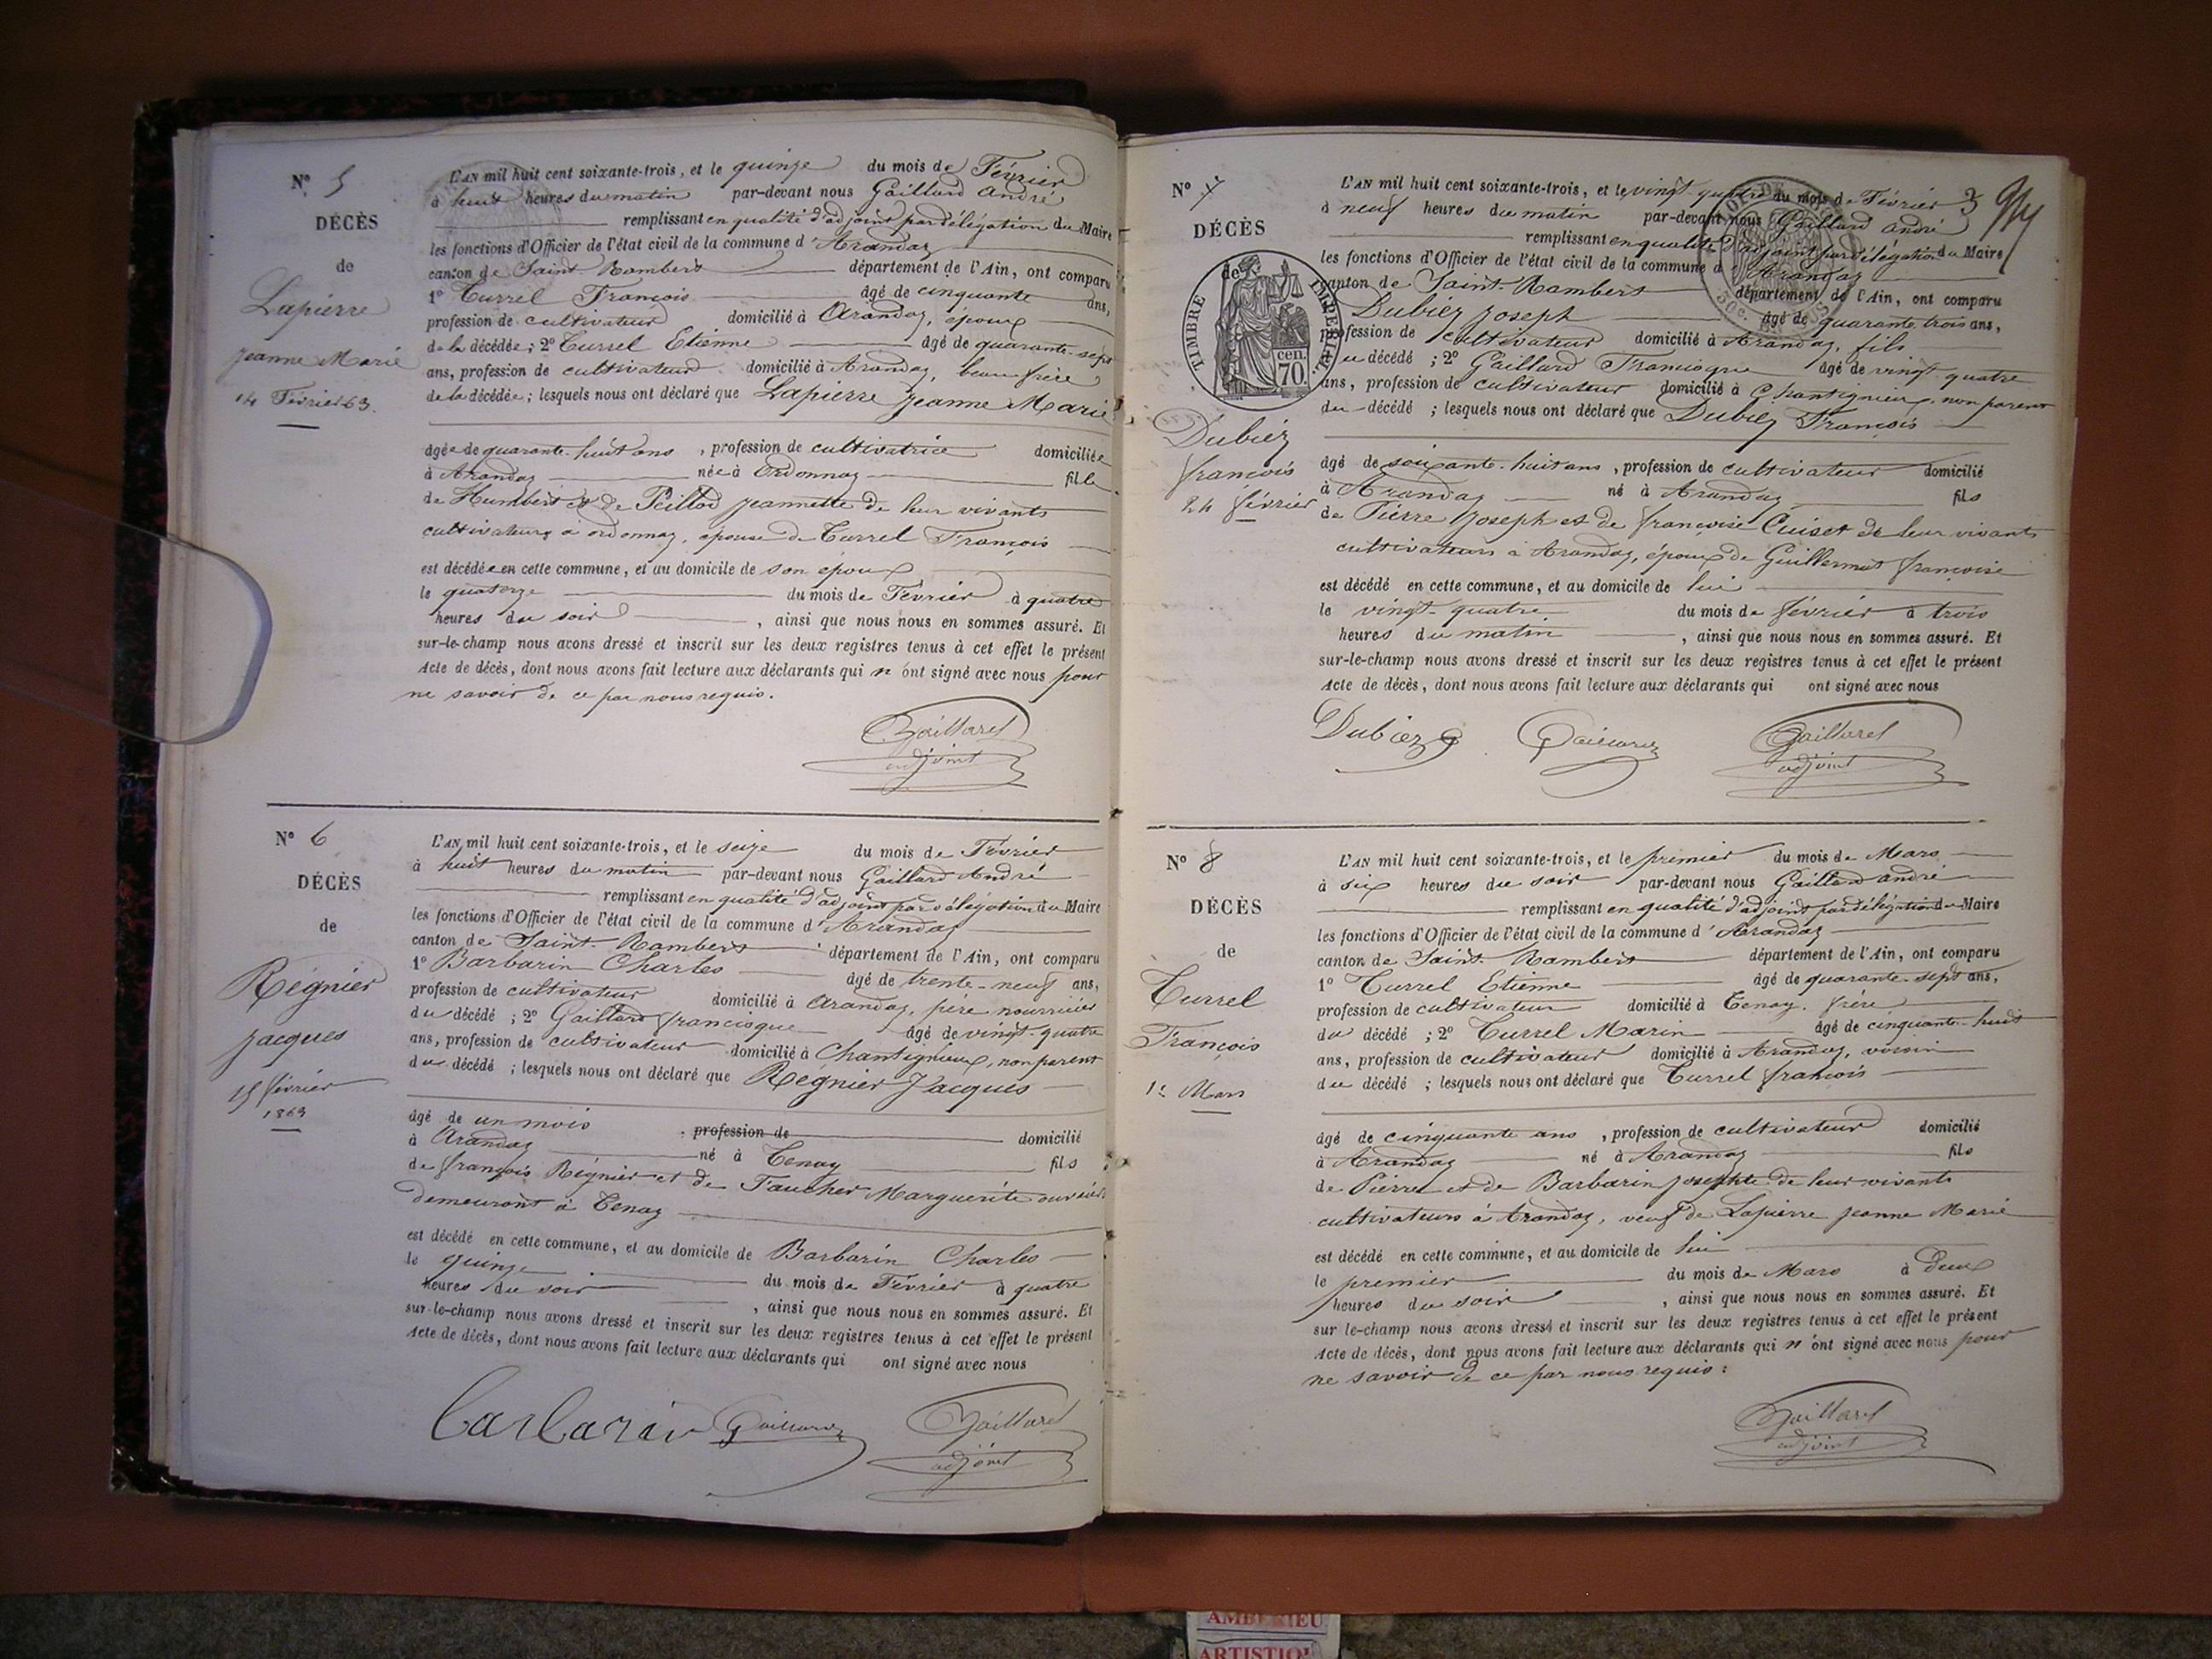 N° 5
DÉCÈS
de
Lapierre
Jeanne Marie
14 Février 63.
L'AN mil huit cent soixante-trois, et le quinze du mois de Février
à huit heures du matin par-devant nous Gaillard André
remplissant en qualité d'adjoint par délégation du Maire
les fonctions d'Officier de l'état civil de la commune d'Arandas
canton de Saint-Rambert département de l'Ain, ont comparu
1° Turrel François âgé de cinquante ans,
profession de cultivateur domicilié à Arandas, époux
de la décédée; 2° Turrel Etienne âgé de quarante-sept
ans, profession de cultivateur domicilié à Arandas, beau frère
de la décédée; lesquels nous ont déclaré que Lapierre Jeanne Marie
âgée de quarante-huit ans, profession de cultivatrice domiciliée
à Arandas née à Ordonnaz fille
de Humbert et de Peillod Jeannette de leur vivants
cultivateurs à ordonnaz, épouse de Turrel François
est décédée en cette commune, et au domicile de son époux
le quatorze du mois de Février à quatre
heures du soir, ainsi que nous nous en sommes assuré. Et
sur-le-champ nous avons dressé et inscrit sur les deux registres tenus à cet effet le présent
Acte de décès, dont nous avons fait lecture aux déclarants qui n'ont signé avec nous pour
ne savoir de ce par nous requis.
Gaillard
adjoint
N° 6
DÉCÈS
de
Régnier
Jacques
15 février
1863
L'AN mil huit cent soixante-trois, et le seize du mois de Février
à huit heures du matin par-devant nous Gaillard André
remplissant en qualité d'adjoint par délégation du Maire
les fonctions d'Officier de l'état civil de la commune d'Arandas
canton de Saint-Rambert département de l'Ain, ont comparu
1° Barbarin Charles âgé de trente-neuf ans,
profession de cultivateur domicilié à Arandas, père nourricier
du décédé; 2° Gaillard francisque âgé de vingt-quatre
ans, profession de cultivateur domicilié à Chantignieux, non parent
du décédé; lesquels nous ont déclaré que Régnier Jacques
âgé de un mois, profession de domicilié
à Arandas né à Tenay fils
de françois Régnier et de Faucher Marguerite
demeurant à Tenay
est décédé en cette commune, et au domicile de Barbarin Charles
le quinze du mois de Février à quatre
heures du soir, ainsi que nous nous en sommes assuré. Et
sur-le-champ nous avons dressé et inscrit sur les deux registres tenus à cet effet le présent
Acte de décès, dont nous avons fait lecture aux déclarants qui ont signé avec nous
Barbarin Gaillard Gaillard
adjoint
N° 7
DÉCÈS
de
TIMBRE IMPÉRIAL.
70 cen.
Dubiez
françois
24 février
3
L'AN mil huit cent soixante-trois, et le vingt-quatre du mois de Février
à neuf heures du matin par-devant nous Gaillard André
remplissant en qualité d'adjoint par délégation du Maire
les fonctions d'Officier de l'état civil de la commune d'Arandas
canton de Saint-Rambert département de l'Ain, ont comparu
Dubiez Joseph âgé de quarante trois ans,
profession de cultivateur domicilié à Arandas, fils
du décédé; 2° Gaillard Francisque âgé de vingt-quatre
ans, profession de cultivateur domicilié à Chantignieux, non parent
du décédé; lesquels nous ont déclaré que Dubiez François
âgé de soixante-huit ans, profession de cultivateur domicilié
à Arandas né à Arandas fils
de Pierre Joseph et de françoise Cuiset de leur vivants
cultivateurs à Arandas, époux de Guillermet françoise
est décédé en cette commune, et au domicile de lui
le vingt-quatre du mois de février à trois
heures du matin, ainsi que nous nous en sommes assuré. Et
sur-le-champ nous avons dressé et inscrit sur les deux registres tenus à cet effet le présent
Acte de décès, dont nous avons fait lecture aux déclarants qui ont signé avec nous
Dubiez Gaillard Gaillard
adjoint
N° 8
DÉCÈS
de
Turrel
François
1er Mars
L'AN mil huit cent soixante-trois, et le premier du mois de Mars
à six heures du soir par-devant nous Gaillard andré
remplissant en qualité d'adjoint par délégation du Maire
les fonctions d'Officier de l'état civil de la commune d'Arandas
canton de Saint-Rambert département de l'Ain, ont comparu
1° Turrel Etienne âgé de quarante-sept ans,
profession de cultivateur domicilié à Tenay, frère
du décédé; 2° Turrel Marin âgé de cinquante-huit
ans, profession de cultivateur domicilié à Arandas, voisin
du décédé; lesquels nous ont déclaré que Turrel françois
âgé de cinquante ans, profession de cultivateur domicilié
à Arandas né à Arandas fils
de Pierre et de Barbarin Josephte de leur vivants
cultivateurs à Arandas, veuf de Lapierre Jeanne Marie
est décédé en cette commune, et au domicile de lui
le premier du mois de Mars à deux
heures du soir, ainsi que nous nous en sommes assuré. Et
sur le-champ nous avons dressé et inscrit sur les deux registres tenus à cet effet le présent
Acte de décès, dont nous avons fait lecture aux déclarants qui n'ont signé avec nous pour
ne savoir de ce par nous requis:
Gaillard
adjoint
AMBERIEU